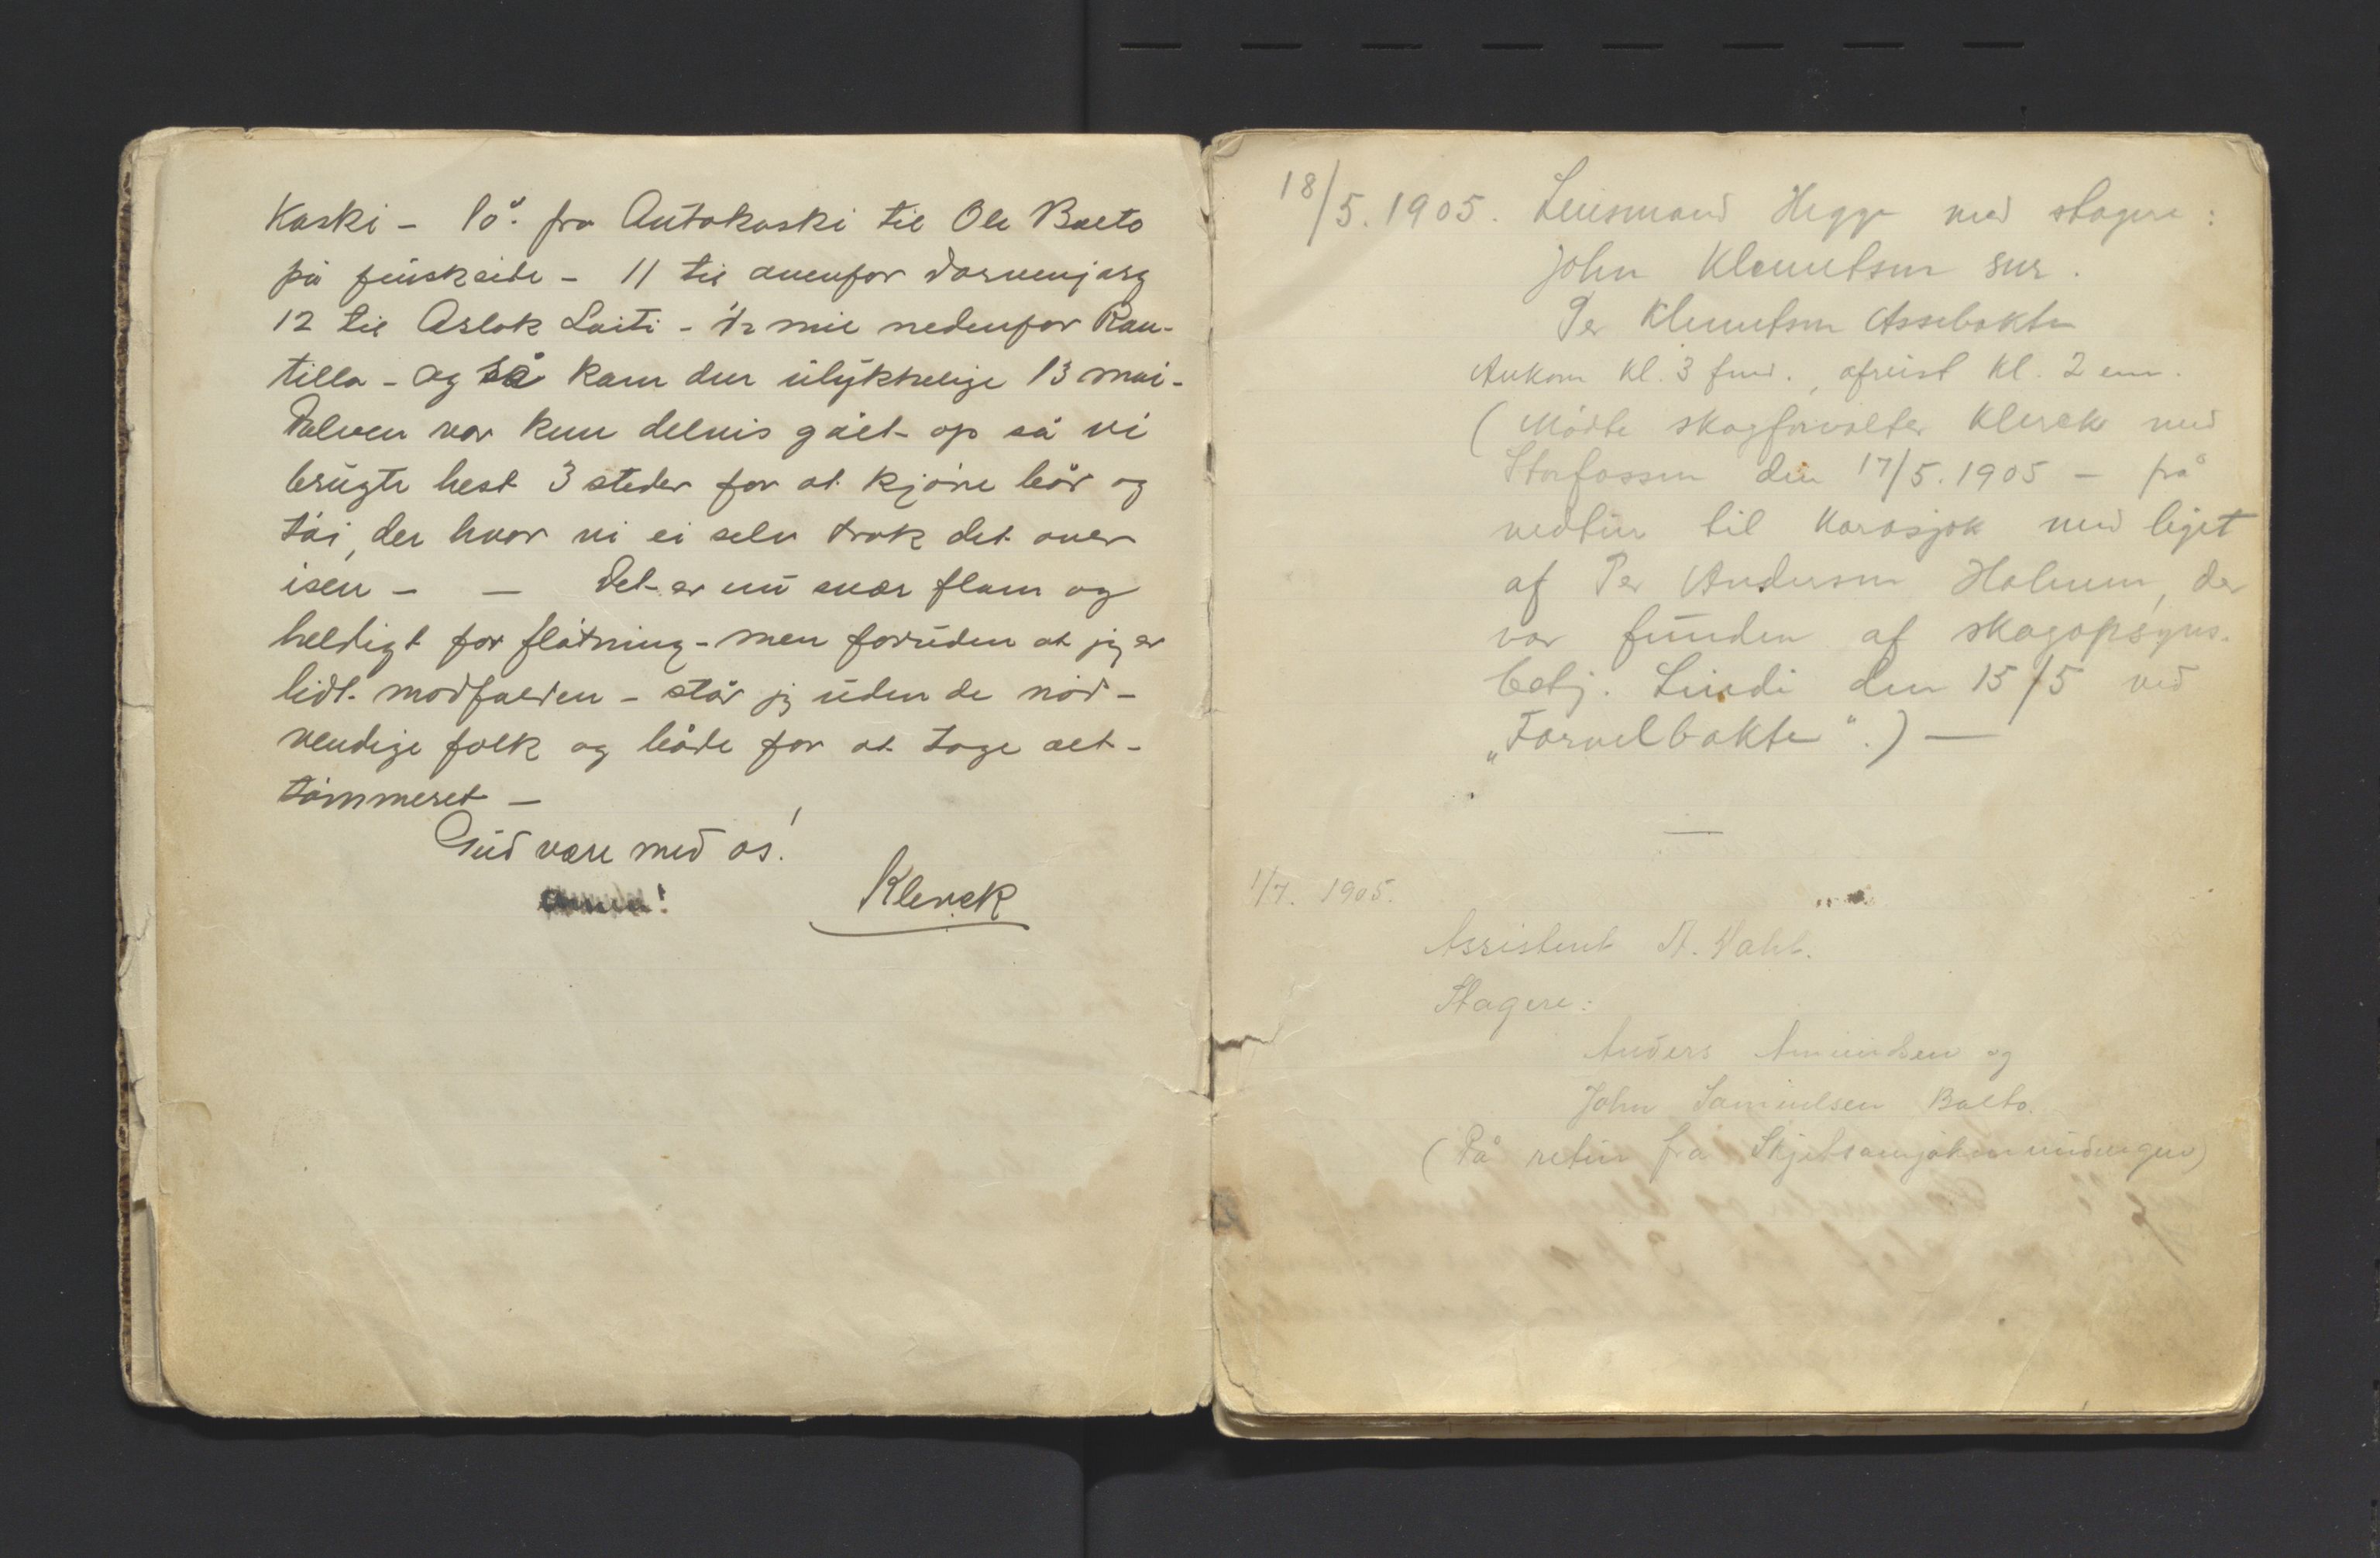 Kaski – 10de fra Autokaski til Ole Balto
på finsk side – 11 til ovenfor Dorvenjarg
12 til Aslak Laiti – 1/2 mil nedenfor Rau-
tilla – og så kom den ulykkelige 13 mai –
Dalven var kun delvis gået op så vi
brugte hest 3 steder for at kjøre bår og
tøi, der hvor vi ei selv trak det over
isen – – Det er nu svær flom og
heldigt for fløtning – men foruden at jeg er
lidt modfalden – står jeg uden de nød-
vendige folk og både for at tage alt –
tømmeret –
Gud være med os!
Amen!
Klerck
18/5. 1905. Lensmand Hegge med stagere:
John Klemetsen sur.
Per Klemetsen Assebakte
Ankom kl. 3 fmd., afreist kl. 2 em.
(Mødte skogforvalter Klerck ved
Storfossen den 17/5. 1905 – på
nedtur til Karasjok med liget
af Per Andersen Halonen, der
var funden af skogopsyns-
betj. Lindi den 15/5 ved
„Farvelbakte“.) —
—
1/7. 1905.
Assistent A. Vahl.
Stagere:
Anders Amundsen og
John Samuelsen Balto.
(På retur fra